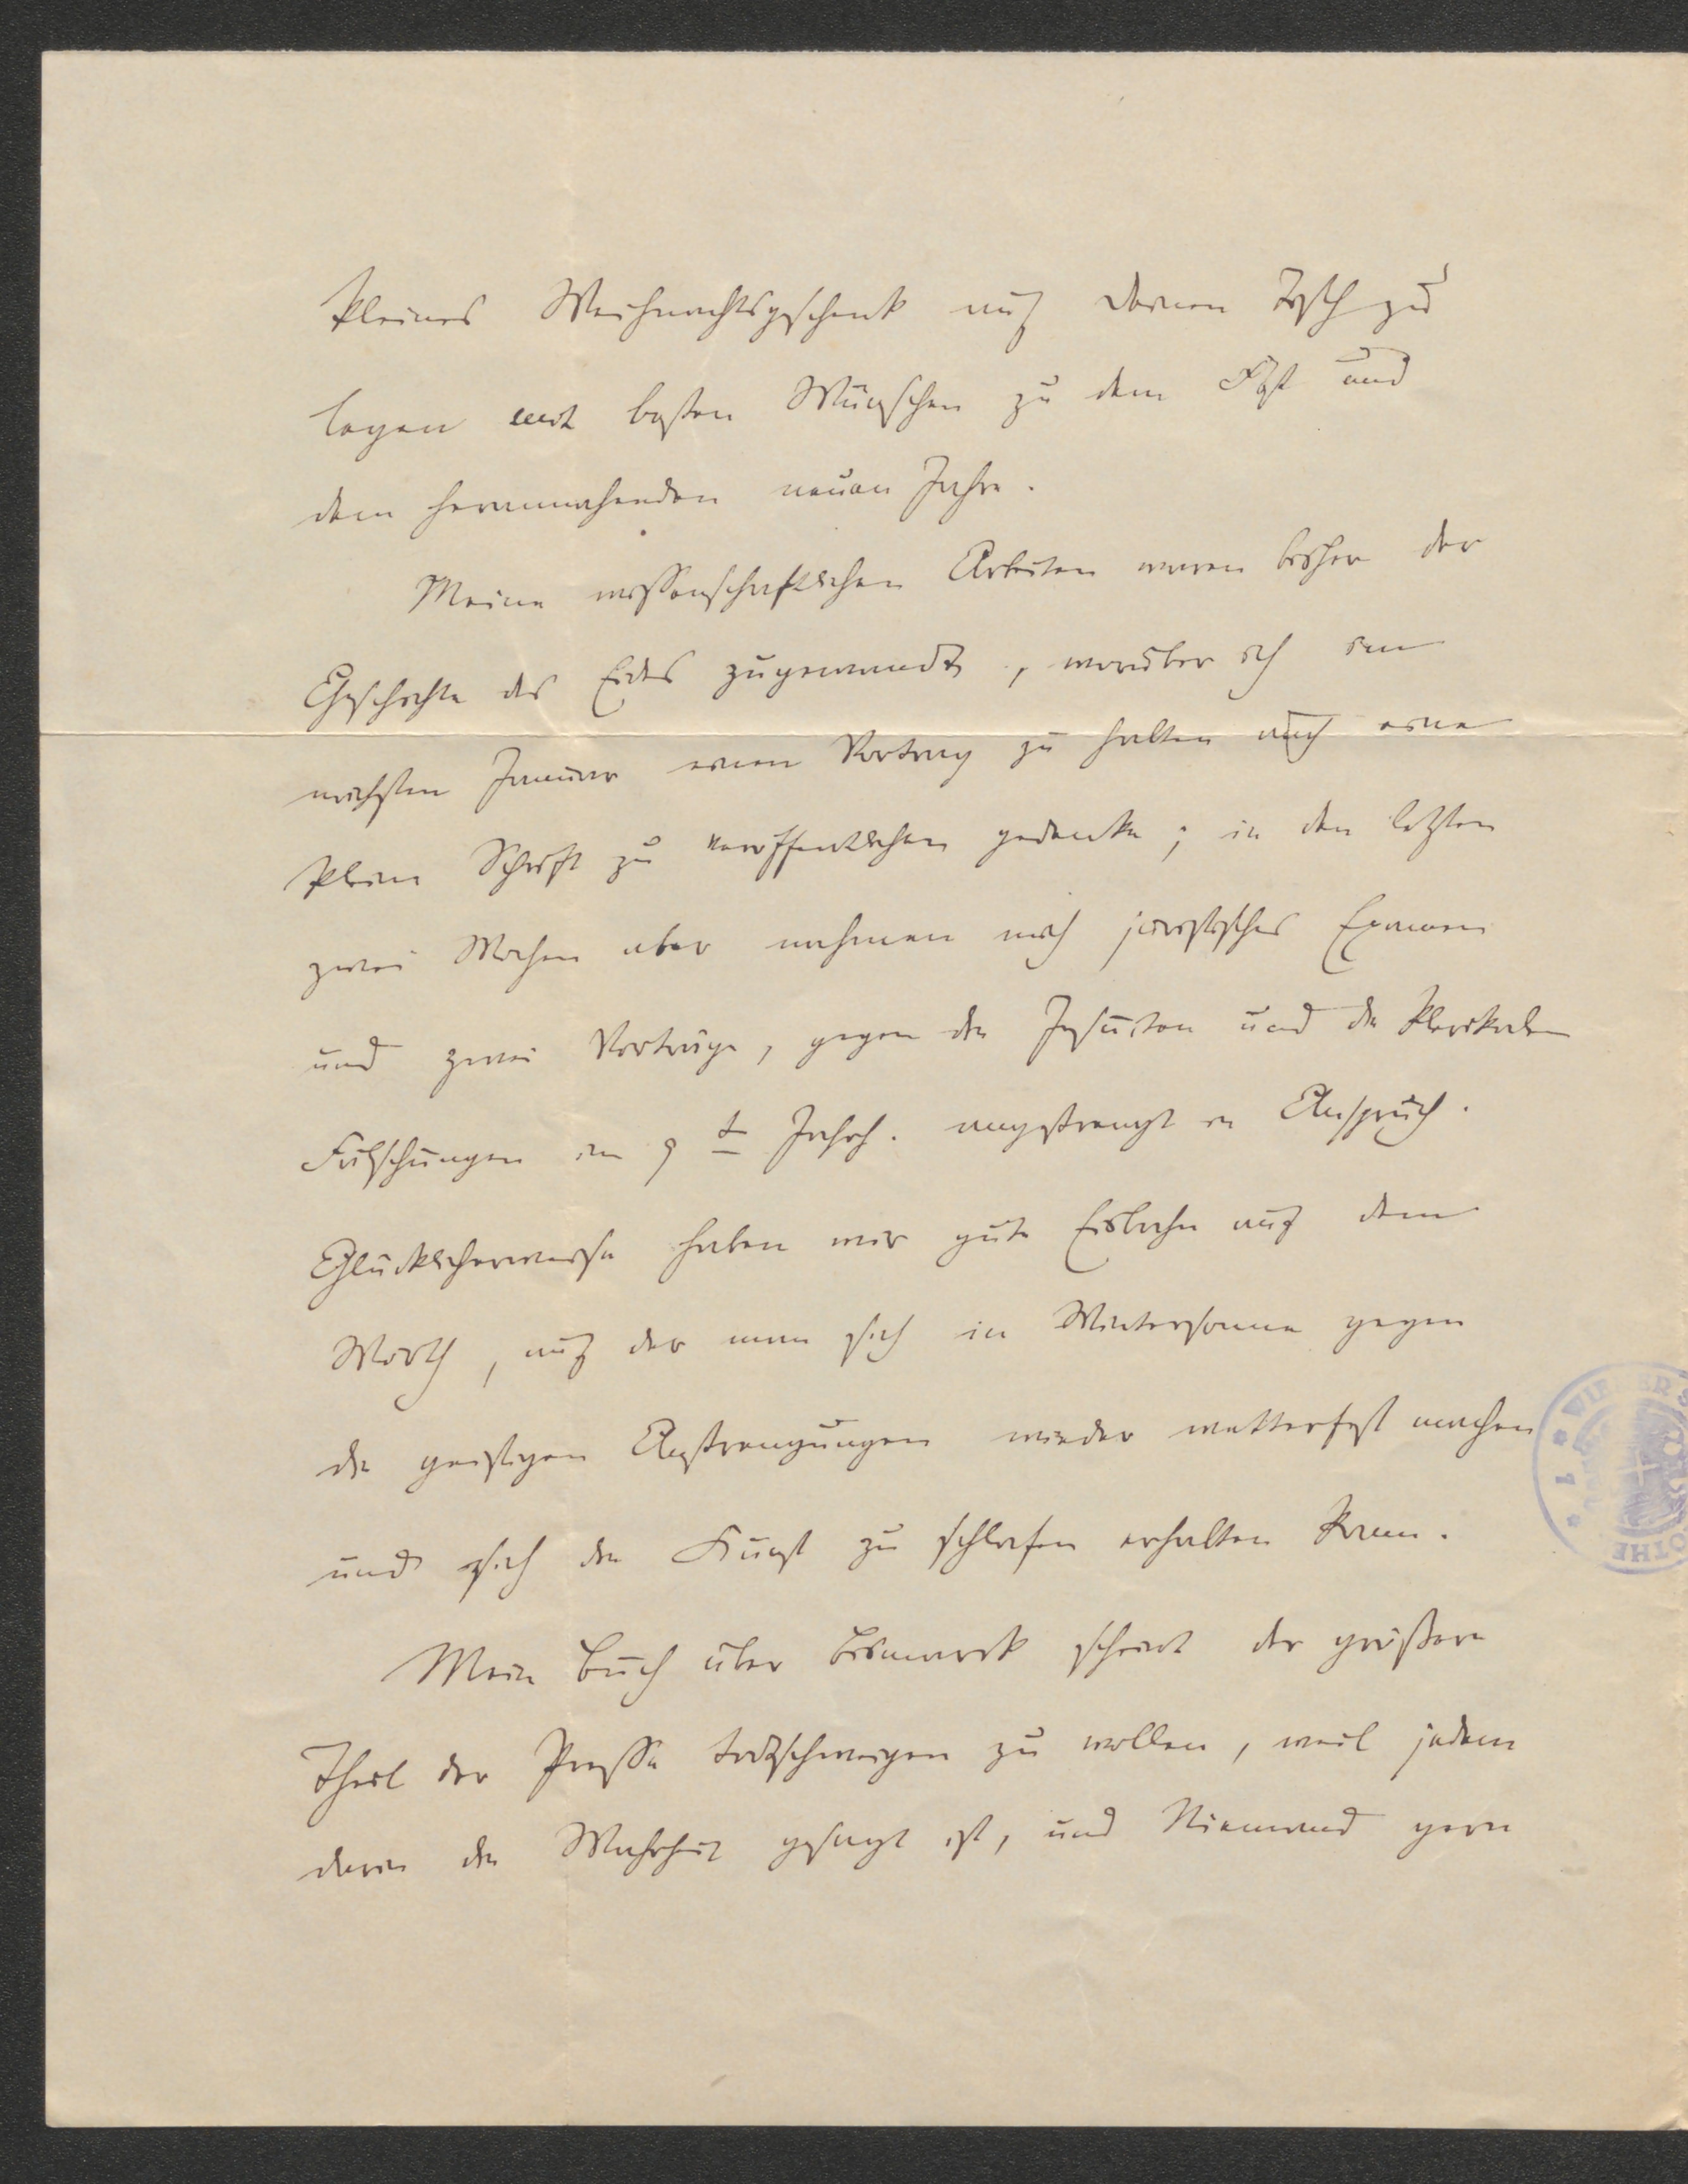 kleines Weihnachtsgeschenk auf Deinen Tisch zu
legen mit besten Wünschen zu dem Fest und
dem herannahenden neuen Jahre.
Meine wissenschaftlichen Arbeiten waren bisher der
Geschichte des Eides zugewandt, worüber ich im
nächsten Januar einen Vortrag zu halten auch eine
kleine Schrift zu veröffentlichen gedenke; in den letzten
zwei Wochen aber nahmen mich juristisches Examen
und zwei Vorträge, gegen die Jesuiten und die klerikalen
Fälschungen im 9t Jahrh. angestrengt in Anspruch.
Glücklicherweise haben wir gute Eisbahn auf dem
Wörth, auf der man sich in Wintersonne gegen
die geistigen Anstrengungen wieder wetterfest machen
und sich die Kunst zu schlafen erhalten kann.
Mein Buch über Bismarck scheint der größere
Theil der Presse todtschweigen zu wollen, weil jedem
darin die Wahrheit gesagt ist, und Niemand gern